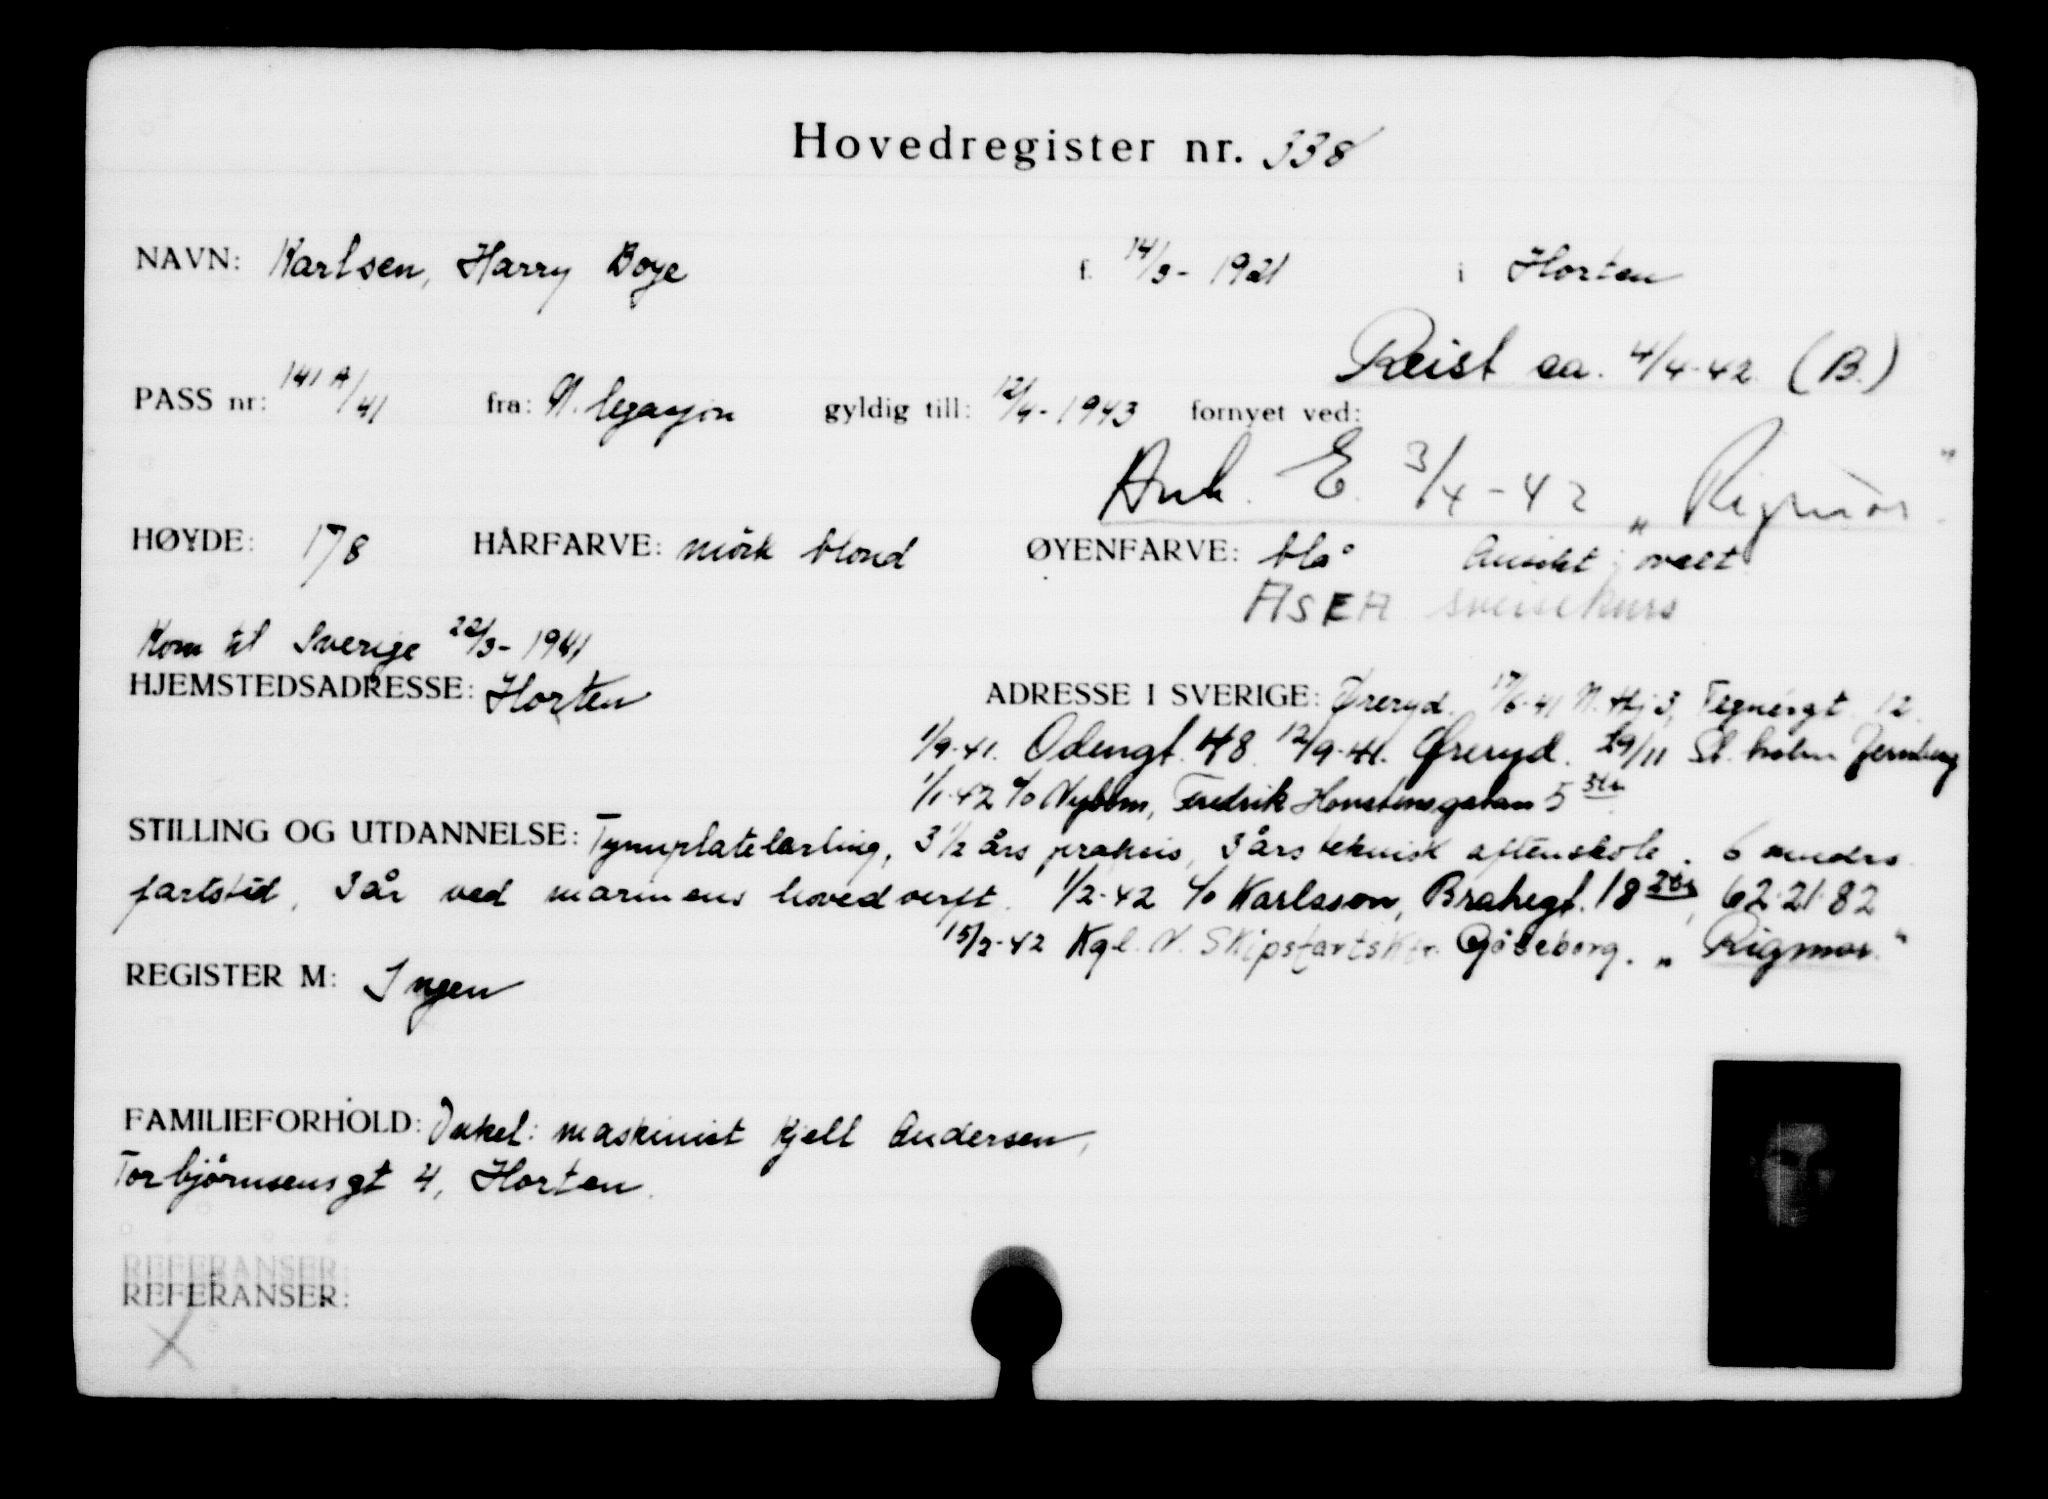 Hovedregister nr. 338
NAVN: Karlsen, Harry Boye f. 14/3 - 1921 i Horten
Reist ca. 4/4-42 (B.)
PASS nr: 141 A/41 fra: N. legasjon gyldig till: 12/4 - 1943 fornyet ved:
Ank. E. 3/4-42 „Rigmor"
HØYDE: 178 HÅRFARVE: mörk blond ØYENFARVE: blå Ansikt: ovalt
ASEA sveisekurs
Kom til Sverige 22/3 - 1941
HJEMSTEDSADRESSE: Horten ADRESSE I SVERIGE: Øreryd. 17/6-41 N. Hj 3, Tegnérgt. 12.
1/9-41. Odengt. 48. 12/9-41. Øreryd. 29/11 St.holm Jernberg
1/1-42 c/o Nyblom, Fredrik Hovstensgatan 5 3tr
STILLING OG UTDANNELSE: Tynnplatelærling, 3 1/2 års praksis, 3 års teknisk aftenskole. 6 mndrs.
fartstid, 3 år ved marinens hovedverft. 1/2-42 c/o Karlsson, Brahegt. 18 2tr, 62.21.82
15/2-42 Kgl. N. Skipsfartsktr. Göteborg. „Rigmor."
REGISTER M: Ingen
FAMILIEFORHOLD: Onkel: maskinist Kjell Andersen,
Torbjörnsensgt 4, Horten.
REFERANSER:
REFERANSER:
X